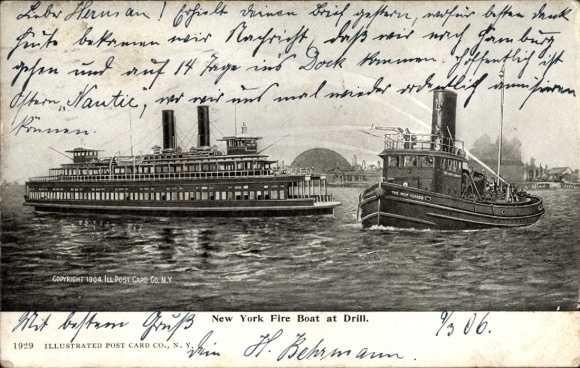 Lieber Hermann! Erhielt deinen Brief gestern, wofür besten dank
Heute bekommen wir Nachricht daß wir nach Hamburg
gehen und auf 14 Tage ins Dock kommen. Hoffentlich ist
Ostern „Nautic“, wo wir uns mal wieder ordentlich amüsieren
können.
COPYRIGHT 1904. ILL. POST CARD CO., N.Y.
New York Fire Boat at Drill.
Mit bestem Gruß 9/3 06.
1929 ILLUSTRATED POST CARD CO., N. Y.
dein H. Behrmann.